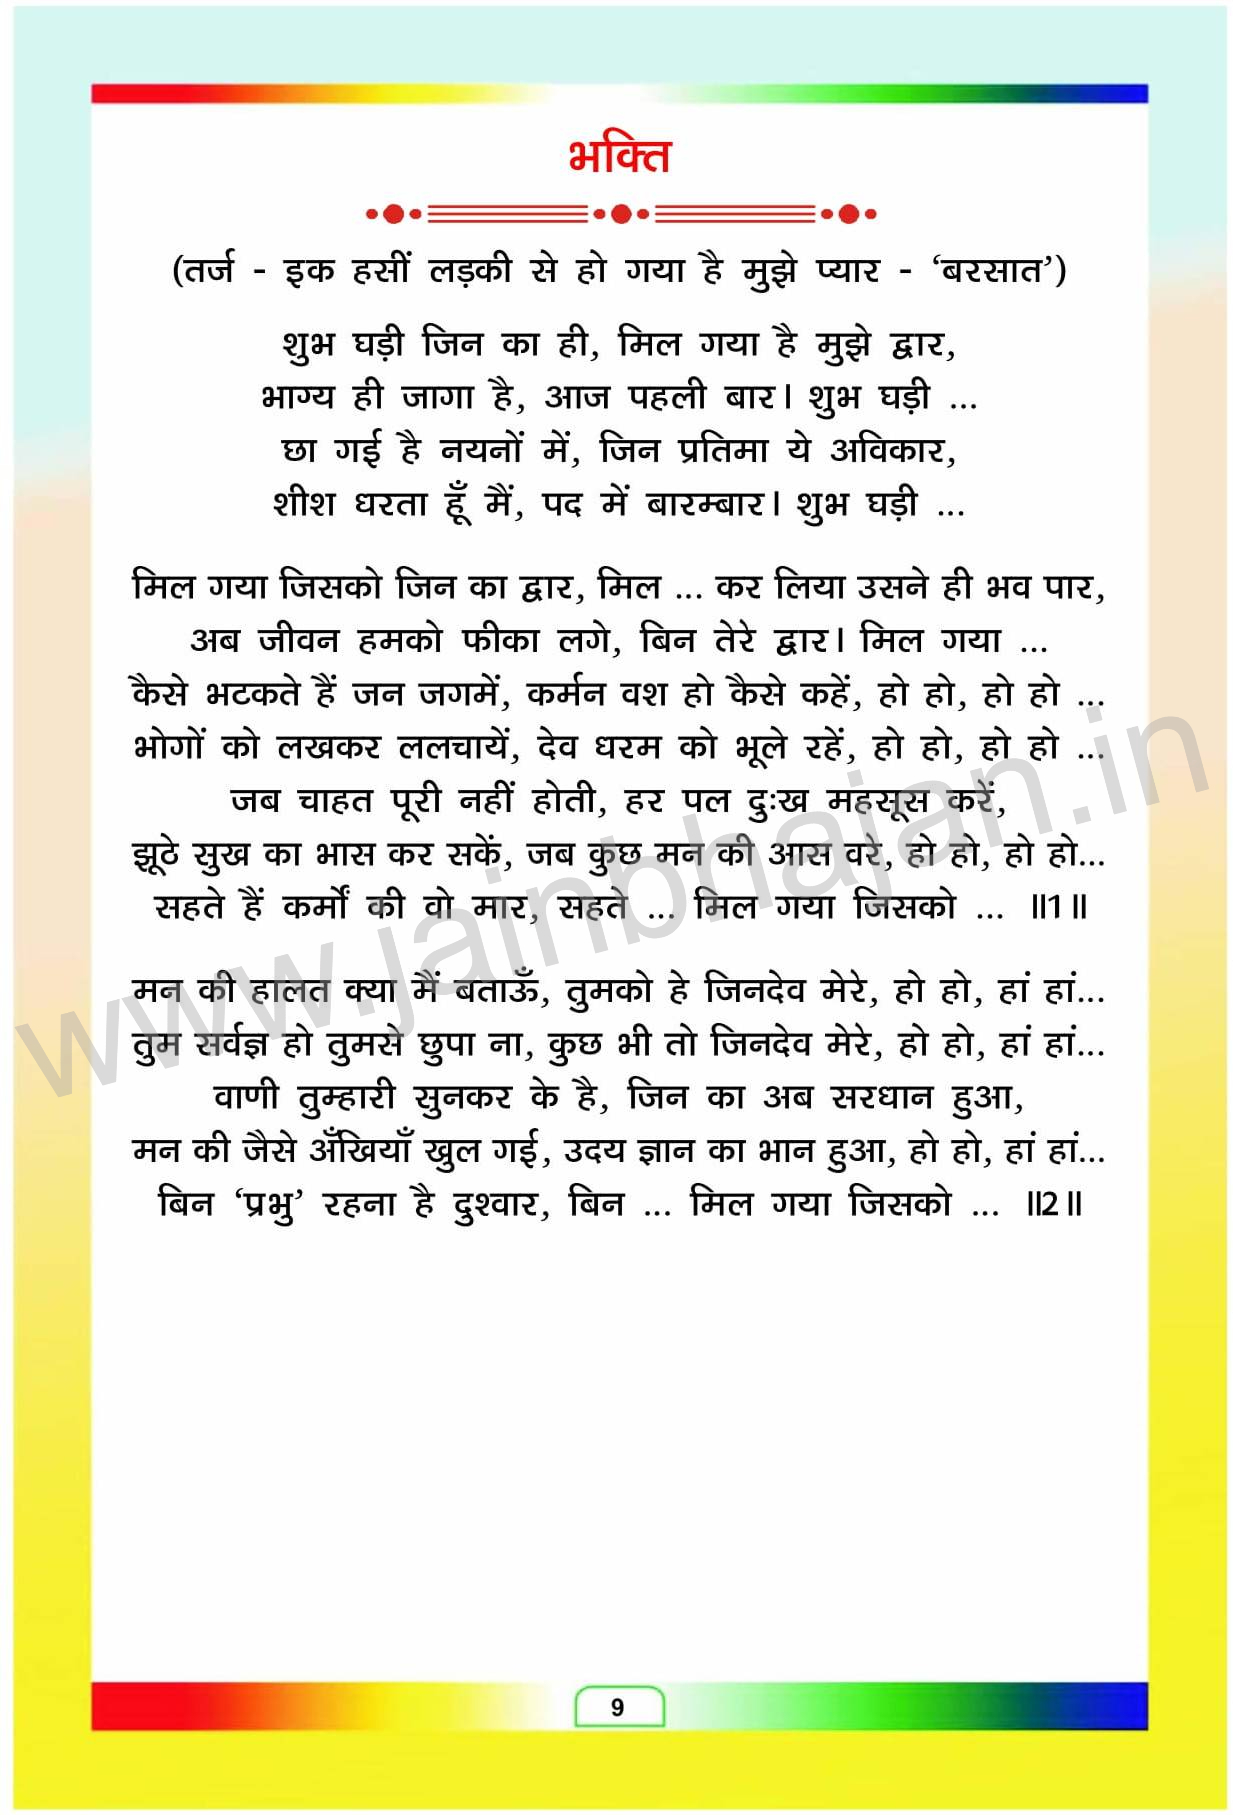 भक्ति
(तर्ज - इक हसीं लड़की से हो गया है मुझे प्यार - ‘बरसात’)
शुभ घड़ी जिन का ही, मिल गया है मुझे द्वार,
भाग्य ही जागा है, आज पहली बार। शुभ घड़ी ...
छा गई है नयनों में, जिन प्रतिमा ये अविकार,
शीश धरता हूँ मैं, पद में बारम्बार। शुभ घड़ी ...
मिल गया जिसको जिन का द्वार, मिल ... कर लिया उसने ही भव पार,
अब जीवन हमको फीका लगे, बिन तेरे द्वार। मिल गया ...
कैसे भटकते हैं जन जगमें, कर्मन वश हो कैसे कहें, हो हो, हो हो ...
भोगों को लखकर ललचायें, देव धरम को भूले रहें, हो हो, हो हो ...
जब चाहत पूरी नहीं होती, हर पल दुःख महसूस करें,
झूठे सुख का भास कर सकें, जब कुछ मन की आस वरे, हो हो, हो हो...
सहते हैं कर्मों की वो मार, सहते ... मिल गया जिसको ... ॥1॥
मन की हालत क्या मैं बताऊँ, तुमको हे जिनदेव मेरे, हो हो, हां हां...
तुम सर्वज्ञ हो तुमसे छुपा ना, कुछ भी तो जिनदेव मेरे, हो हो, हां हां...
वाणी तुम्हारी सुनकर के है, जिन का अब सरधान हुआ,
मन की जैसे अँखियाँ खुल गई, उदय ज्ञान का भान हुआ, हो हो, हां हां...
बिन ‘प्रभु’ रहना है दुश्वार, बिन ... मिल गया जिसको ... ॥2॥
www.jainbhajan.in
9